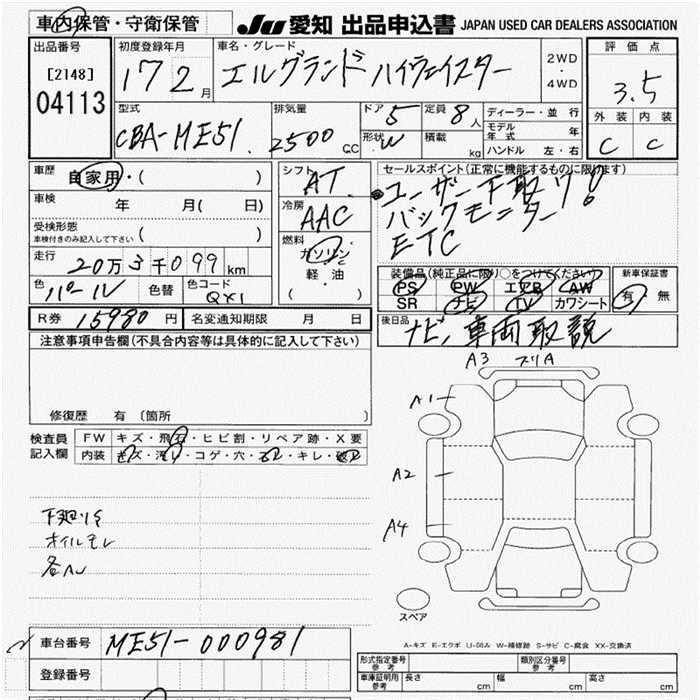 車内保管・守衛保管
JU 愛知 出品申込書 JAPAN USED CAR DEALERS ASSOCIATION
出品番号
[2148]
04113
初度登録年月
17 2 月
車名・グレード
エルグランド ハイウェイスター
2WD
・
4WD
評価点
3.5
外装 内装
C C
型式
CBA-ME51
排気量
2500 CC
ドア 5
形状 W
定員 8 人
積載 kg
ディーラー・並行
モデル年式 年
ハンドル 左・右
車歴
自家用・( )
車検
年 月( 日)
受検形態
車検付きのみ記入して下さい ( )
走行
20万3千099km
色
パール
色替
色コード
QX1
シフト
AT
冷房
AAC
燃料
ガソリン
軽油
( ・ )
セールスポイント(正常に機能するものに限ります)
ユーザー下取り!
バックモニター
ETC
装備品(純正品に限り○をつけてください)
PS PW エアB AW
SR ナビ TV カワシート
新車保証書
有・無
R券 15980 円
名変通知期限 月 日
後日品
ナビ、車両取説
注意事項申告欄(不具合内容等は具体的に記入して下さい)
修復歴 有 〔箇所 〕
検査員
記入欄
FW キズ・飛石・ヒビ割・リペア跡・X要
内装 キズ・汚れ・コゲ・穴・ズレ・キレ・破レ
下廻りS
オイルモレ
各ヘコ
A3
A1
A2
A4
スペア
A-キズ E-エクボ U-凹み W-補修跡 S-サビ C-腐食 XX-交換済
車台番号
ME51-000981
登録番号
形式指定番号
参考
類別区分番号
参考
車庫証明用
参考
長さ cm 幅 cm 高さ cm